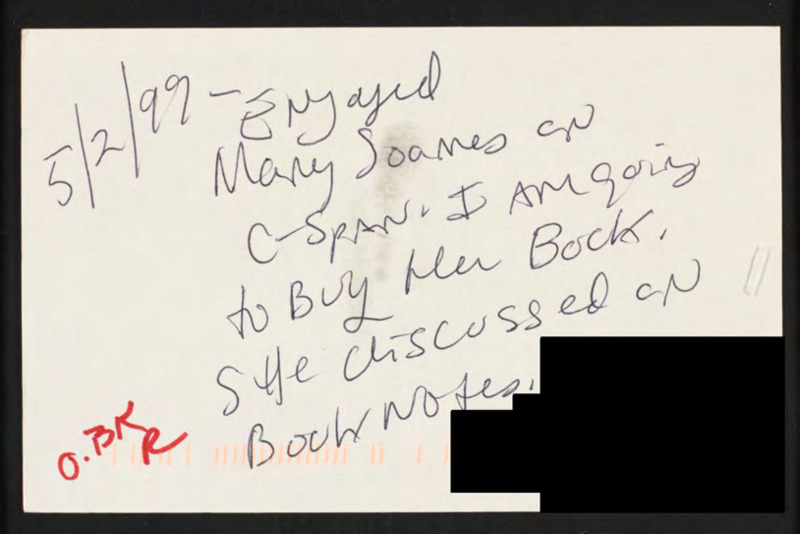 5/2/99 - Enjoyed
Mary Soames on
C-SPAN. I AM going
to Buy Her Book.
SHe discussed on
Book Notes.
O.BK
R